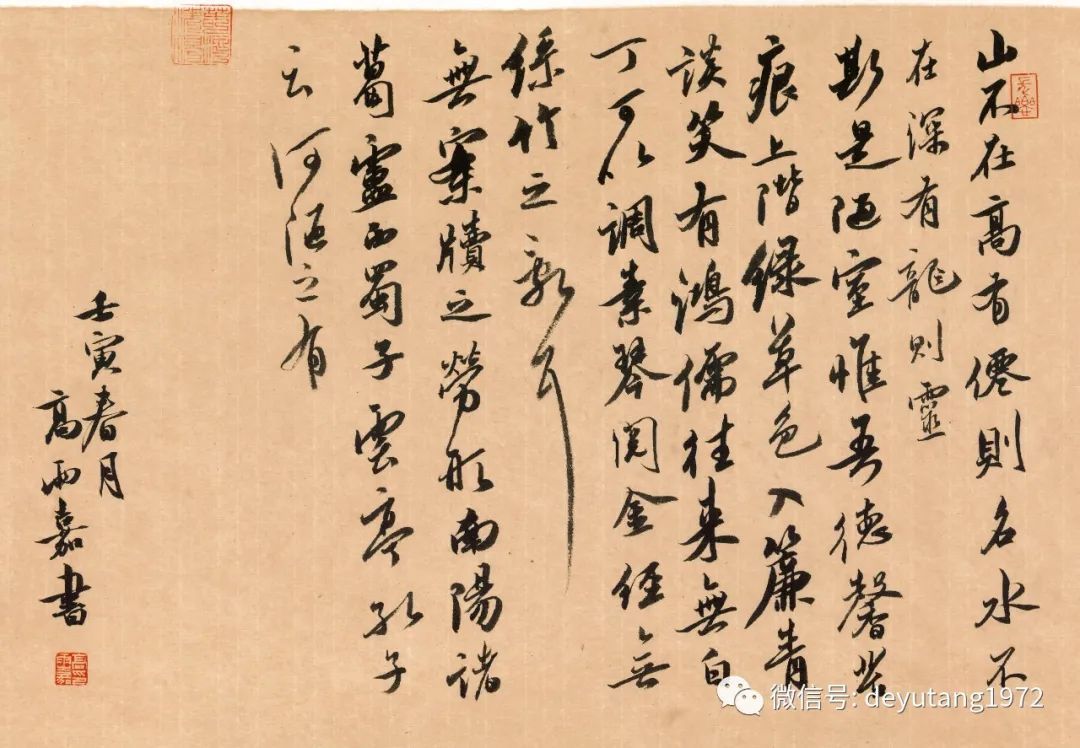 山不在高有僊則名水不
在深有龍則靈
斯是陋室惟吾德馨苔
痕上階緑草色入簾青
談笑有鴻儒往来無白
丁可以調素琴閱金經無
絲竹之亂耳
無案牘之勞形南陽諸
葛盧西蜀子雲亭孔子
云何陋之有
壬寅春月
高雨嘉書
微信号: deyutang1972